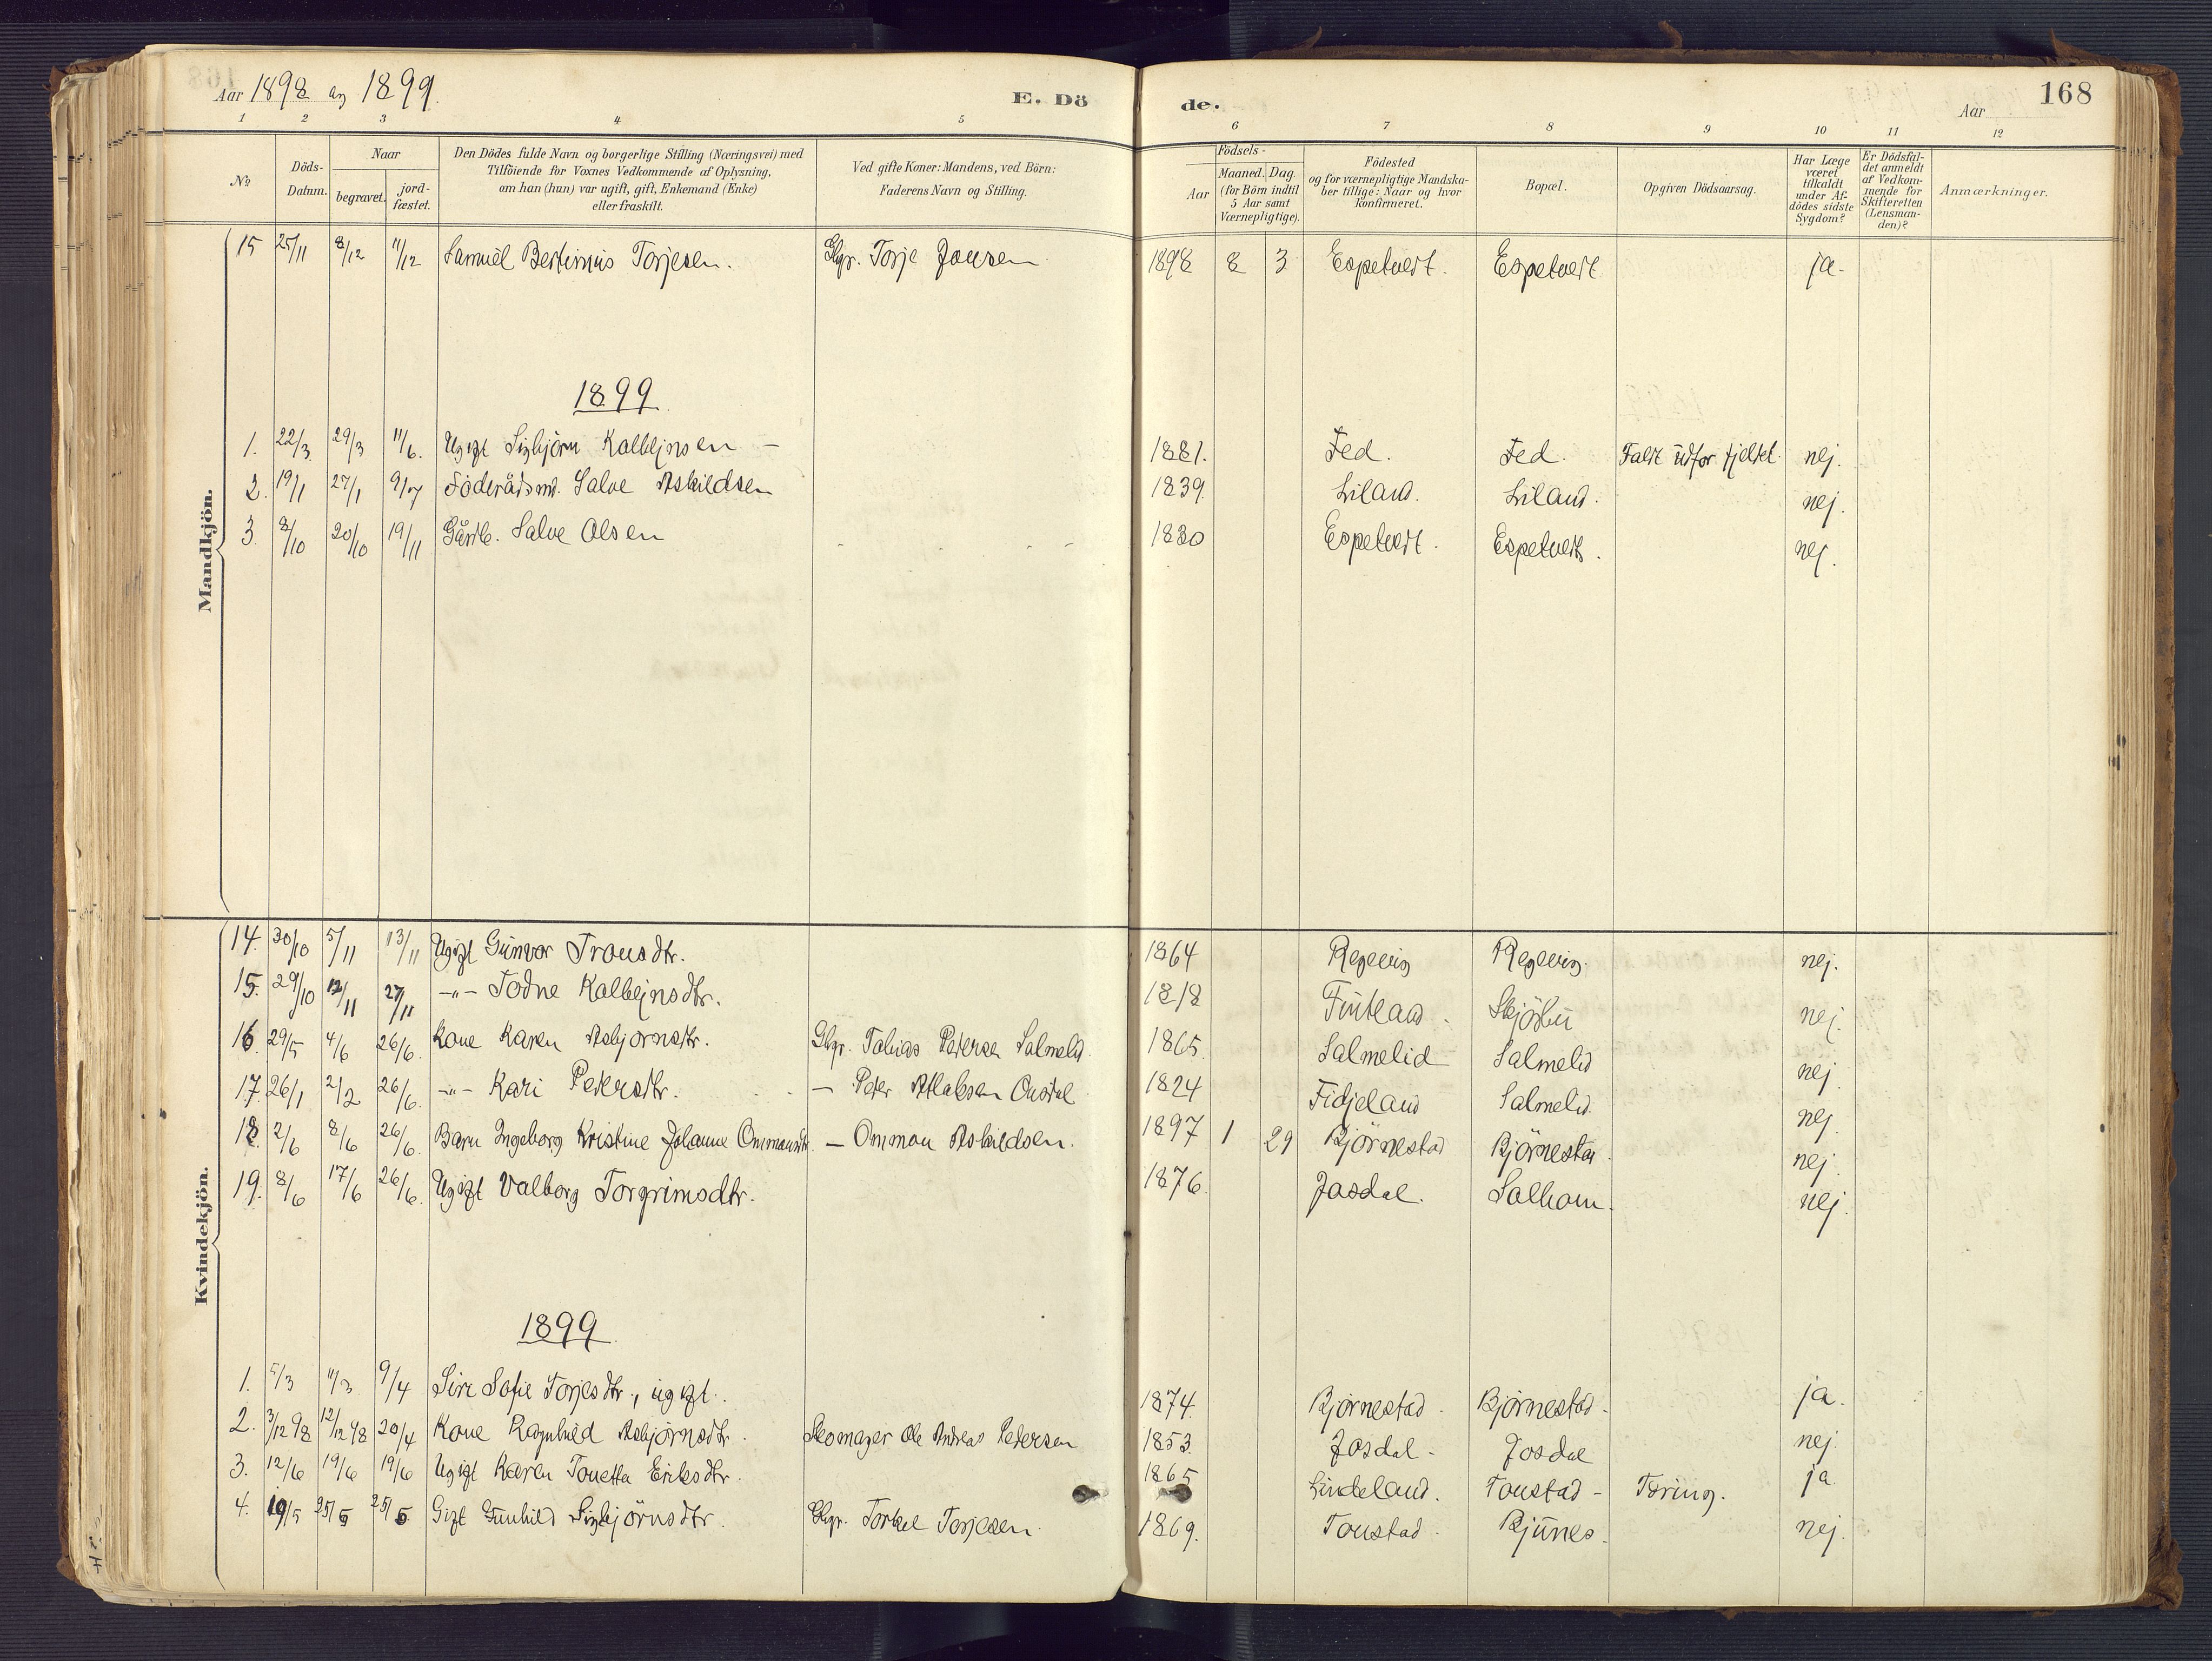 Aar 1898 og 1899.
E. Döde.
Aar
168
1 2 3 4 5 6 7 8 9 10 11 12
№
Döds-Datum.
Naar
begravet.
jordfæstet.
Den Dödes fulde Navn og borgerlige Stilling (Næringsvei) med
Tilföiende for Voxnes Vedkommende af Oplysning,
om han (hun) var ugift, gift, Enkemand (Enke)
eller fraskilt.
Ved gifte Koner: Mandens, ved Börn:
Faderens Navn og Stilling.
Födsels-
Aar
Maaned. Dag.
(for Börn indtil
5 Aar samt
Værnepligtige).
Födested
og for værnepligtige Mandska-
ber tillige: Naar og hvor
konfirmeret.
Bopæl.
Opgiven Dödsaarsag.
Har Læge
været
tilkaldt
under Af-
dödes sidste
Sygdom?
Er Dödsfal-
det anmeldt
af Vedkom-
mende for
Skifteretten
(Lensman-
den)?
Anmærkninger.
Mandkjön.
15 25/11 8/12 11/12 Samuel Bertinius Torjesen. Gbgr. Torje Jonsen 1898 8 3 Espetvedt. Espetvedt ja.
1899
1. 22/3 29/3 11/6. Ugift Sigbjörn Kolbejnsen – 1881. Fed. Fed. Faldt udfor fjeldet. nej.
2. 19/1 27/1 9/7 Föderådsmd. Salve Askildsen 1839. Liland. Liland. nej.
3. 8/10 20/10 19/11 Gårdb. Salve Olsen 1830 Espetvedt. Espetvedt. nej.
Kvindekjön.
14. 30/10 5/11 13/11 Ugift Gunvor Tronsdtr. 1864 Regevig Regevig. nej.
15. 29/10 12/11 27/11 –"– Todne Kolbejnsdtr. 1818 Fintland. nej.
16. 29/5 4/6 26/6. Kone Karen Asbjörnsdtr. Gbgr. Tobias Petersen Salmelid. 1865. Salmelid Salmelid nej.
17. 26/1 2/2 26/6. –"– Kari Petersdtr. – Peter Atlaksen Ousdal 1824 Fidjeland Salmelid. nej.
18. 2/6 8/6 26/6. Barn Ingeborg Kristine Johanne Ommundsdtr. – Ommon Askildsen. 1897 1 29 Björnestad Björnestad. nej.
19. 8/6 17/6 26/6. Ugift Valborg Torgrimsdtr. 1876. Josdal. Salhom. nej.
1899
1. 5/3 11/3 9/4 Siri Sofie Torjesdtr., ugift. 1874. Björnestad. Björnestad. ja.
2. 3/12 98 12/12 98 20/4 Kone Ragnhild Asbjörnsdtr. Skomager Ole Andreas Pedersen 1853. Josdal. Josdal nej.
3. 12/6 19/6 19/6 Ugift Karen Tonetta Eriksdtr. 1865 Lindeland. Tonstad – Tæring. ja
4. 19/5 25/5 25/5 Gift Gunhild Sigbjörnsdtr. Gbgr. Torkel Torjesen. 1869. Tonstad. Bjunes. nej.